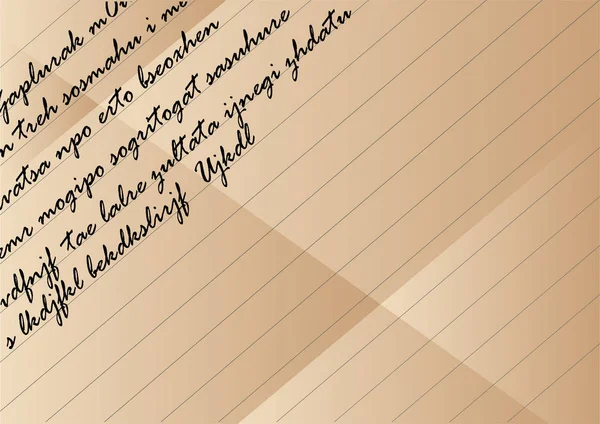 Gaplurak
n treh sosmahu i me
vatsa npo erto bseoxhen
emr mogipo sogritogat sasuhure
vdfnjf tae lalre zultata ijnegi zhdatu
s lkdjfkl bekdkslirjf Ujkdl